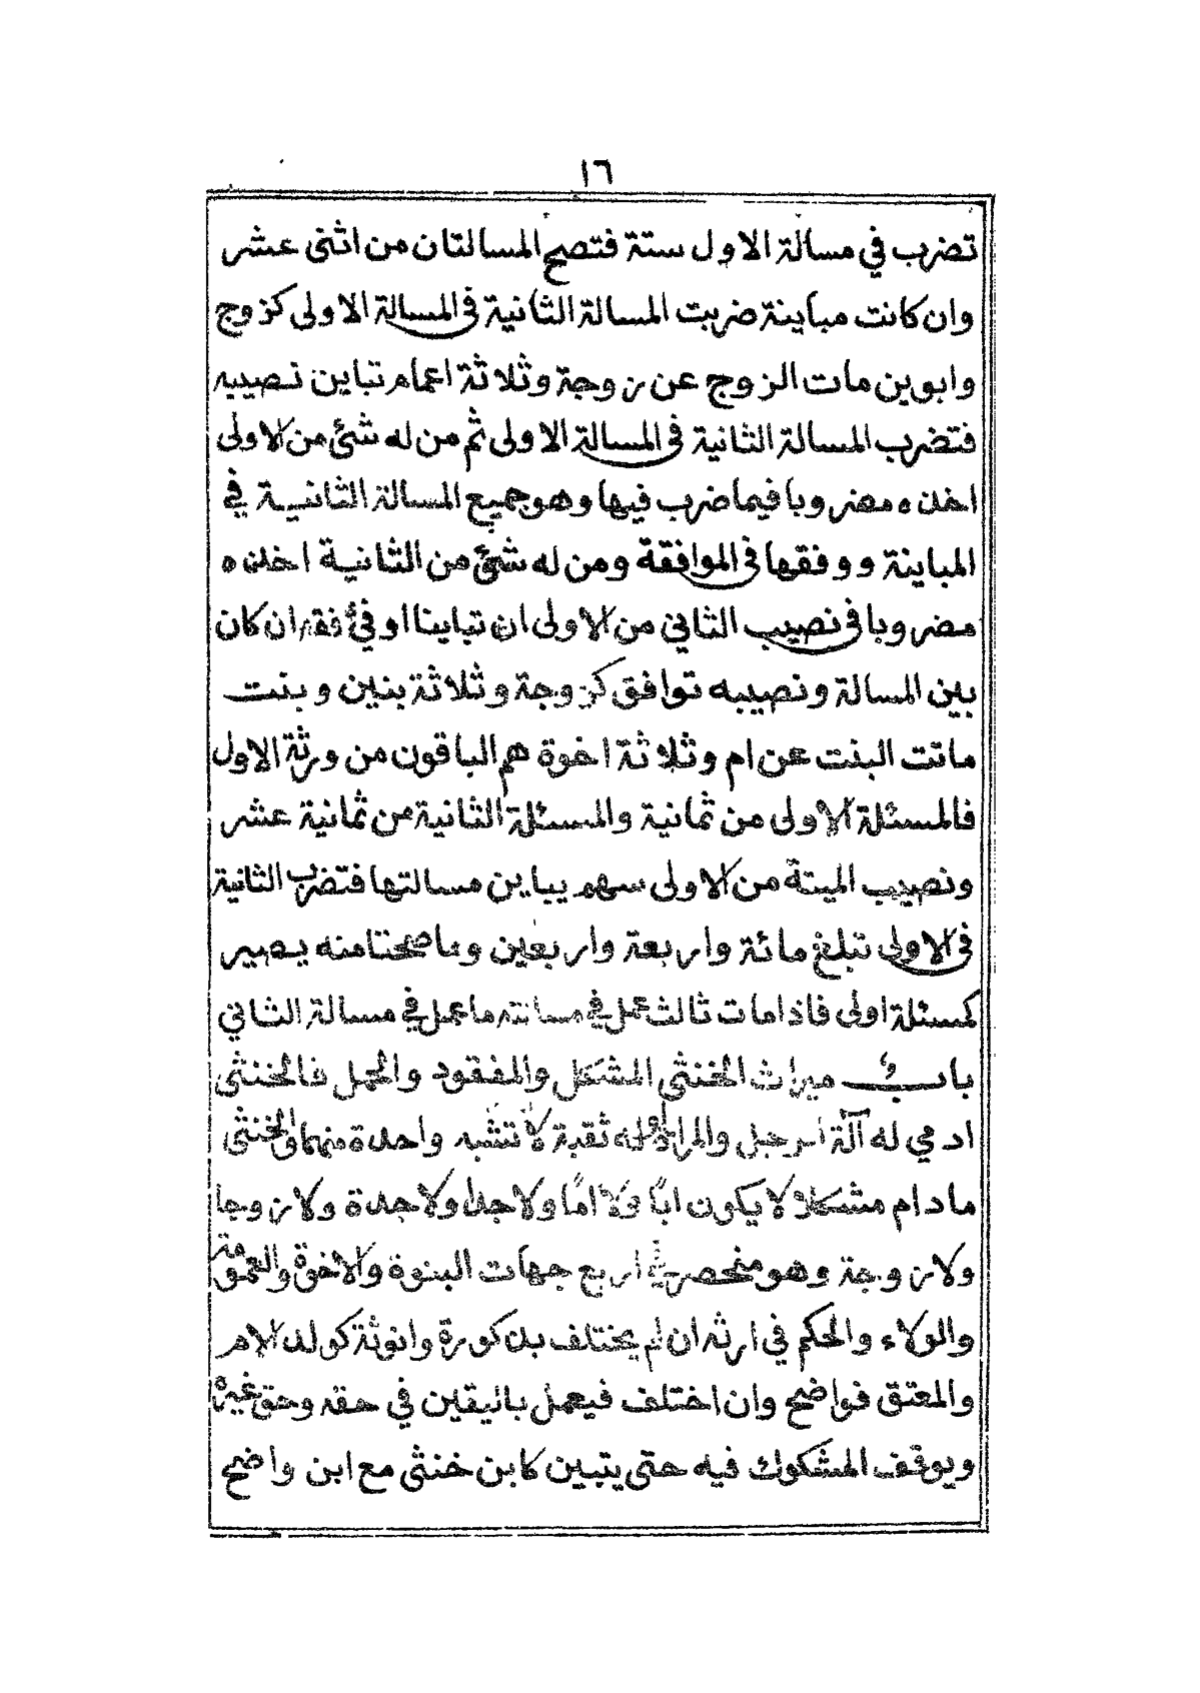 ١٦
تضرب في مسالة الاول ستة فتصح المسالتان من اثنى عشر
وان كانت مباينة ضربت المسالة الثانية فى المسالة الاولى كزوج
وابوين مات الزوج عن زوجة وثلاثة اعمام تباين نصيبه
فتضرب المسالة الثانية فى المسالة الاولى ثم من له شئ من الاولى
اخذه مضروبا فيما ضرب فيها وهو جميع المسالة الثانية في
المباينة ووفقها فى الموافقة ومن له شئ من الثانية اخذه
مضروبا فى نصيب الثاني من الاولى ان تباينا او في وفقه ان كان
بين المسالة ونصيبه توافق كزوجة وثلاثة بنين وبنت
ماتت البنت عن ام وثلاثة اخوة هم الباقون من ورثة الاول
فالمسئلة الاولى من ثمانية والمسئلة الثانية من ثمانية عشر
ونصيب الميتة من الاولى سهم يباين مسالتها فتضرب الثانية
فى الاولى تبلغ مائة واربعة واربعين وما صحتا منه يصير
كمسئلة اولى فاذا مات ثالث عمل في مسالته ما عمل في مسالة الثاني
باب ميراث الخنثى المشكل والمفقود والحمل فالخنثى
ادمي له آلة الرجل والمراة او له ثقبة لا تشبه واحدة منهما والخنثى
ما دام مشكلا لا يكون ابًا ولا امًا ولا جدا ولا جدة ولا زوجا
ولا زوجة وهو منحصر في اربع جهات البنوة والاخوة والعمومة
والولاء والحكم في ارثه ان لم يختلف بذكورة وانوثة كولد الام
والمعتق فواضح وان اختلف فيعمل باليقين في حقه وحق غيره
ويوقف المشكوك فيه حتى يتبين كابن خنثى مع ابن واضح